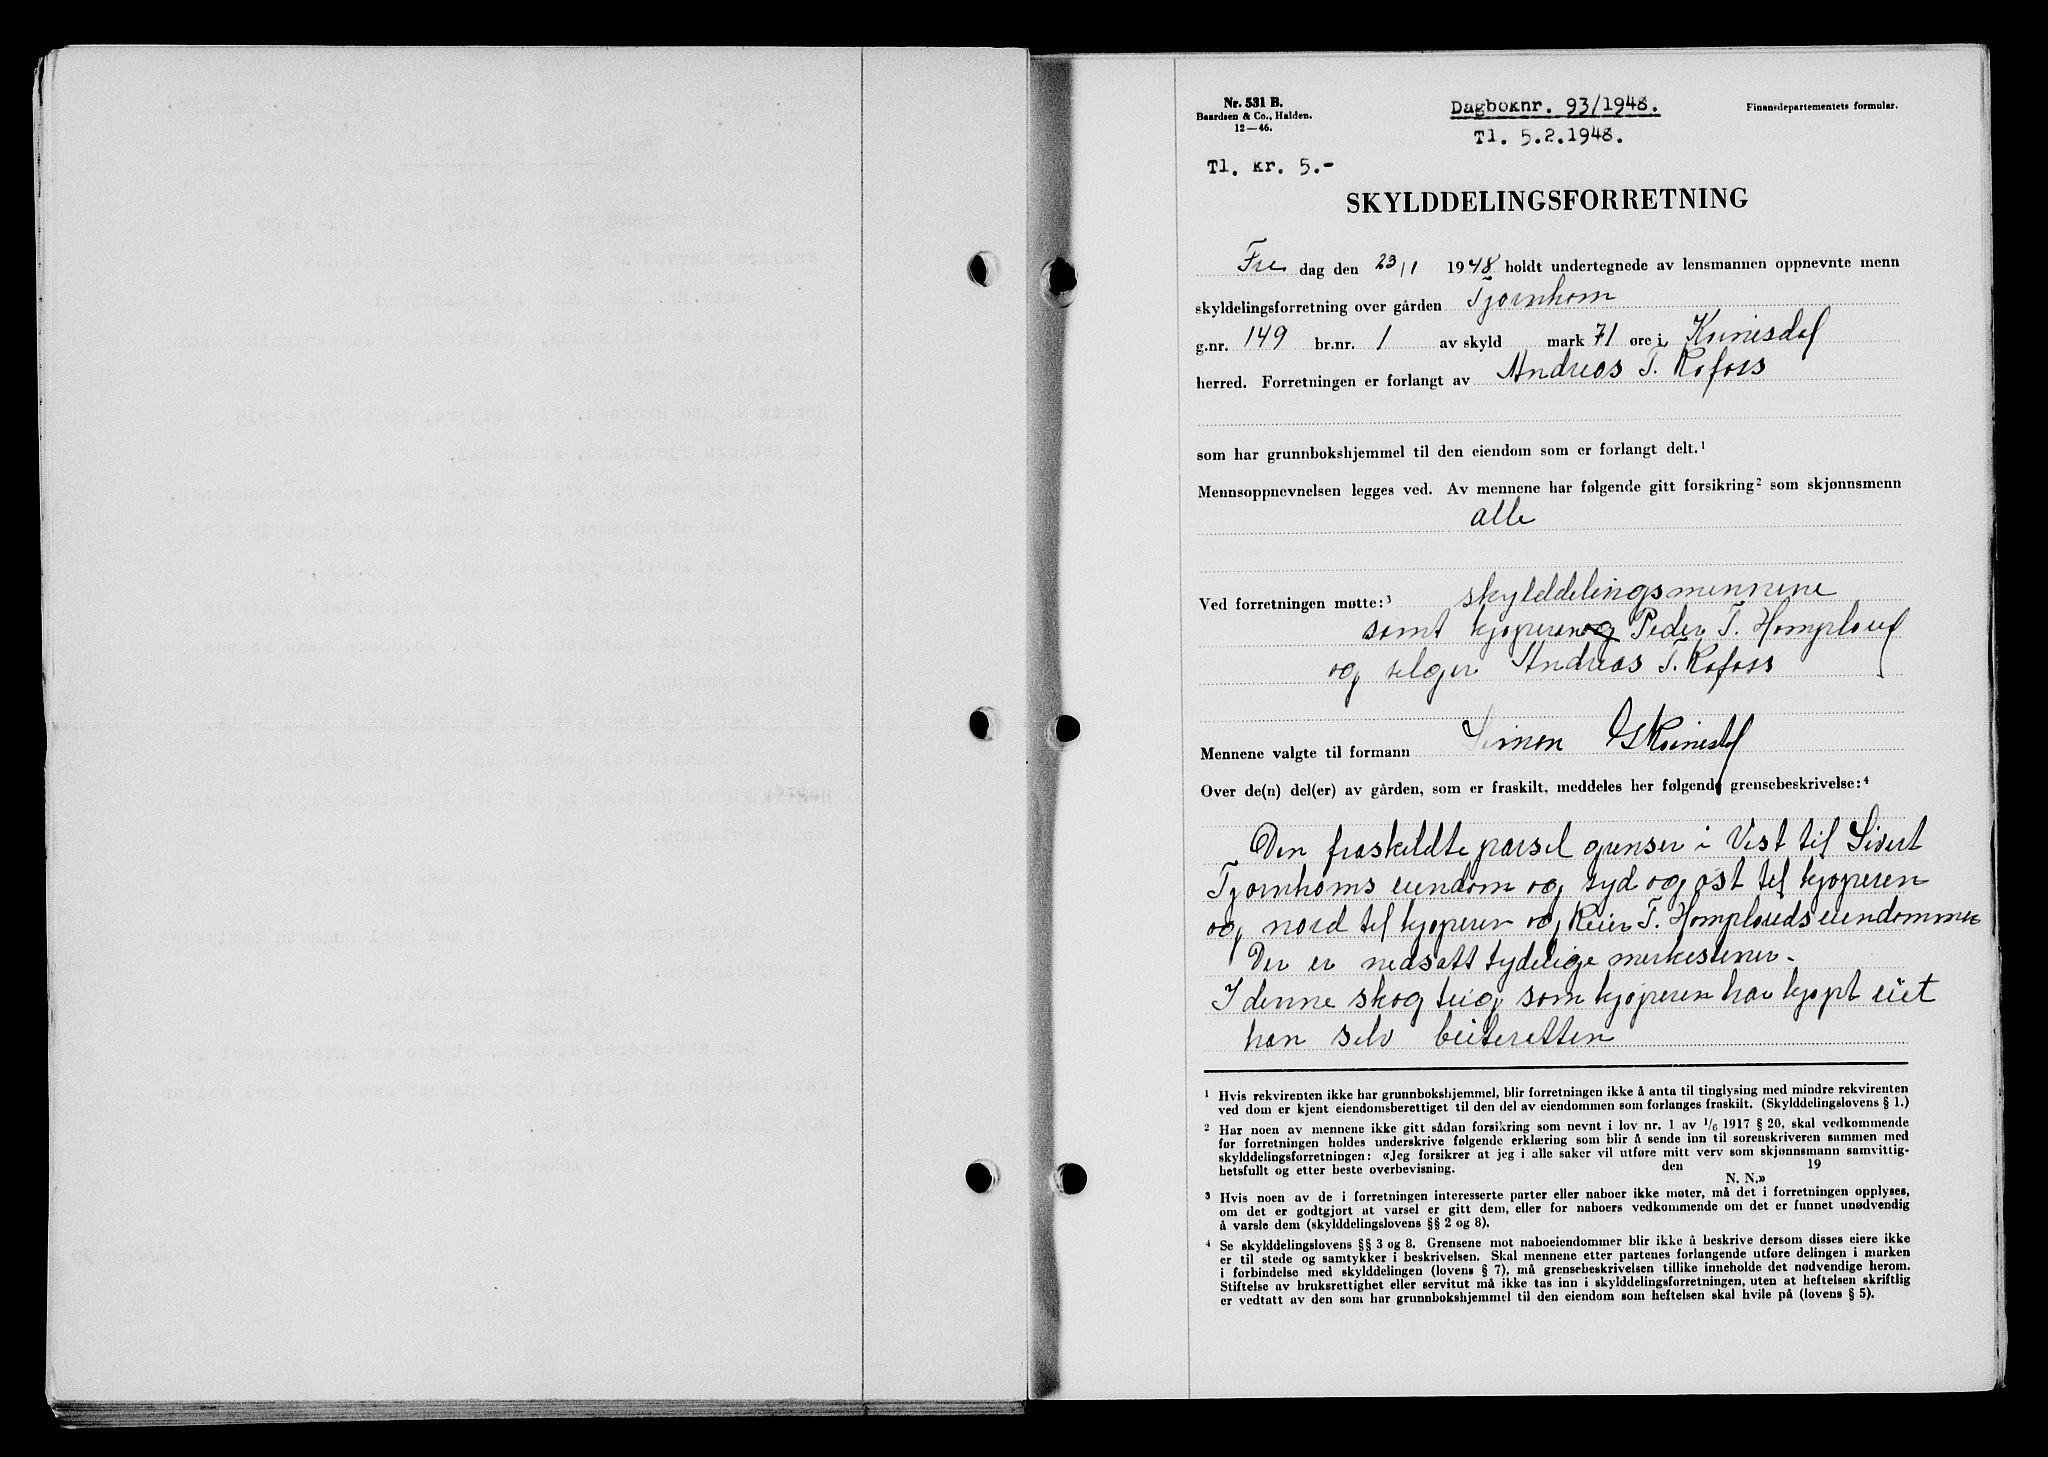 Nr. 531 B.
Baardsen & Co., Halden.
12—46.
Dagboknr. 93/1948.
Tl. 5.2.1948.
Finansdepartementets formular.
Tl. kr. 5.-
SKYLDDELINGSFORRETNING
Fre dag den 23/1 1948 holdt undertegnede av lensmannen oppnevnte menn
skyldelingsforretning over gården Tjørnhom
g.nr. 149 br.nr. 1 av skyld mark 71 øre i Kvinesdal
herred. Forretningen er forlangt av Andreas T. Rafoss
som har grunnbokshjemmel til den eiendom som er forlangt delt.¹
Mennsoppnevnelsen legges ved. Av mennene har følgende gitt forsikring² som skjønnsmenn
alle
Ved forretningen møtte:³ skylddelingsmennene
samt kjøperen og Peder T. Homploud
og selger Andreas T. Rafoss
Mennene valgte til formann Simon G Kvinesdal
Over de(n) del(er) av gården, som er fraskilt, meddeles her følgende grensebeskrivelse:⁴
Den fraskildte parsel grenser i Vest til Sivert
Tjørnhoms eiendom og syd og øst til kjøperen
og nord til kjøperen og Reier T. Homplouds eiendommer
Der er nedsatt tydelige merkestener.
I denne skogteig som kjøperen har kjøpt eiet
han selv beiteretten
¹ Hvis rekvirenten ikke har grunnbokshjemmel, blir forretningen ikke å anta til tinglysing med mindre rekvirenten
ved dom er kjent eiendomsberettiget til den del av eiendommen som forlanges fraskilt. (Skylddelingslovens § 1.)
² Har noen av mennene ikke gitt sådan forsikring som nevnt i lov nr. 1 av 1/6 1917 § 20, skal vedkommende
før forretningen holdes underskrive følgende erklæring som blir å sende inn til sorenskriveren sammen med
skylddelingsforretningen: «Jeg forsikrer at jeg i alle saker vil utføre mitt verv som skjønnsmann samvittig-
hetsfullt og etter beste overbevisning. den 19
N. N.»
³ Hvis noen av de i forretningen interesserte parter eller naboer ikke møter, må det i forretningen opplyses,
om det er godtgjort at varsel er gitt dem, eller for naboers vedkommende om det er funnet unødvendig
å varsle dem (skylddelingslovens §§ 2 og 8).
⁴ Se skylddelingslovens §§ 3 og 8. Grensene mot naboeiendommer blir ikke å beskrive dersom disses eiere ikke
er til stede og samtykker i beskrivelsen. Skal mennene etter partenes forlangende utføre delingen i marken
i forbindelse med skylddelingen (lovens § 7), må grensebeskrivelsen tillike inneholde det nødvendige herom.
Stiftelse av bruksrettighet eller servitut må ikke tas inn i skylddelingsforretningen, uten at heftelsen skriftlig
er vedtatt av den som har grunnbokshjemmel til den eiendom som heftelsen skal hvile på (lovens § 5).